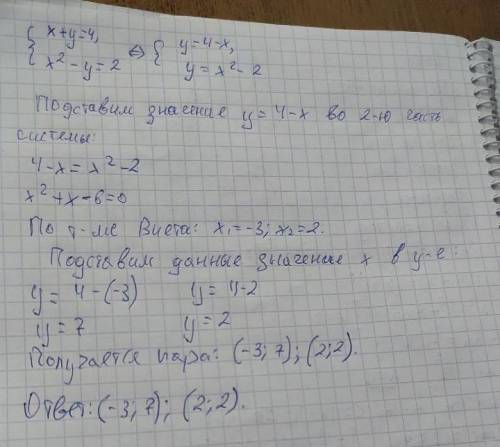 { x+y=4, ⇔ { y=4-x,
{ x²-y=2 { y=x²-2
Подставим значение y=4-x во 2-ю часть
системы:
4-x=x²-2
x²+x-6=0
По т-ме Виета: x₁=-3; x₂=2.
Подставим данные значение x в у-е:
y=4-(-3) y=4-2
y=7 y=2
Получается пара: (-3;7);(2;2).
Ответ:(-3;7); (2;2).